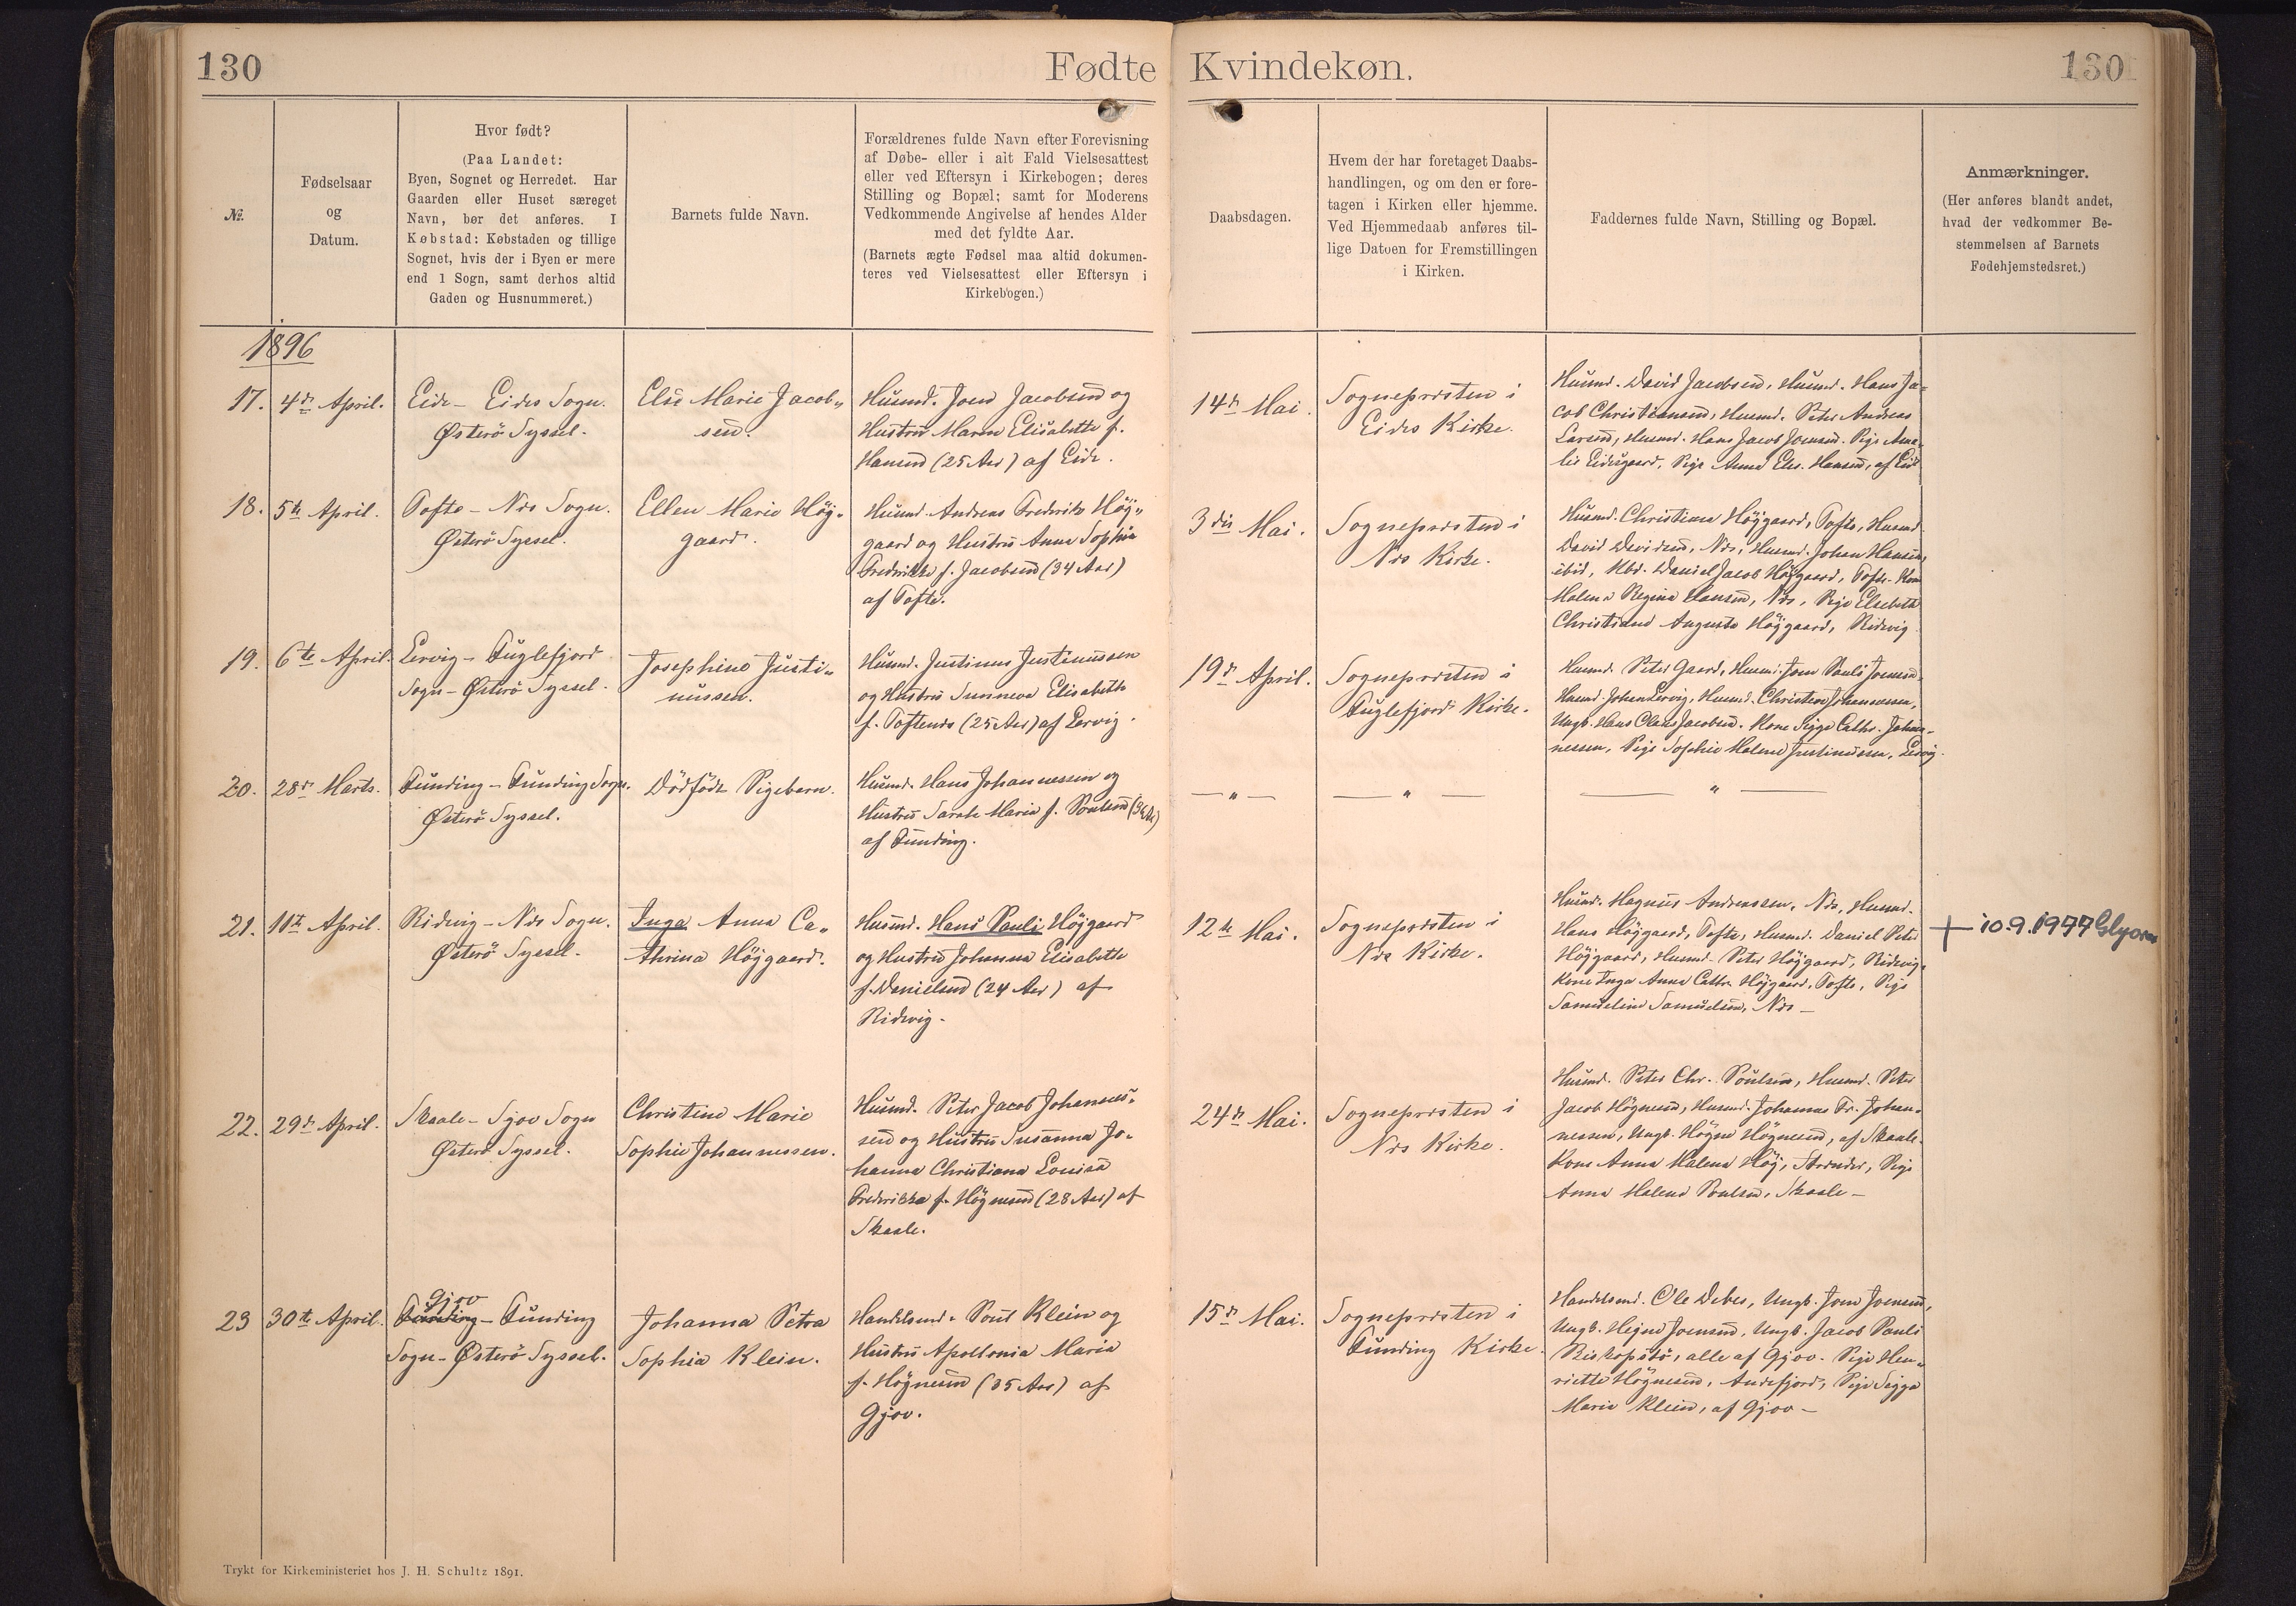 130
Fødte
Kvindekøn.
130
№.
Fødselsaar
og
Datum.
Hvor født?
(Paa Landet:
Byen, Sognet og Herredet. Har
Gaarden eller Huset særeget
Navn, bør det anføres. I
Købstad: Købstaden og tillige
Sognet, hvis der i Byen er mere
end 1 Sogn, samt derhos altid
Gaden og Husnummeret.)
Barnets fulde Navn.
Forældrenes fulde Navn efter Forevisning
af Døbe- eller i alt Fald Vielsesattest
eller ved Eftersyn i Kirkebogen; deres
Stilling og Bopæl; samt for Moderens
Vedkommende Angivelse af hendes Alder
med det fyldte Aar.
(Barnets ægte Fødsel maa altid dokumen-
teres ved Vielsesattest eller Eftersyn i
Kirkebogen.)
Daabsdagen.
Hvem der har foretaget Daabs-
handlingen, og om den er fore-
tagen i Kirken eller hjemme.
Ved Hjemmedaab anføres til-
lige Datoen for Fremstillingen
i Kirken.
Faddernes fulde Navn, Stilling og Bopæl.
Anmærkninger.
(Her anføres blandt andet,
hvad der vedkommer Be-
stemmelsen af Barnets
Fødehjemstedsret.)
1896
17.
4de April.
Eide - Eides Sogn.
Østerö Syssel.
Else Marie Jacob-
sen.
Husmd. Joen Jacobsen og
Hustru Maren Elisabeth f.
Hansen (25 Aar) af Eide.
14de Mai.
Sognepræsten i
Eides Kirke.
Husmd. David Jacobsen, Husmd. Hans Ja-
cob Christiansen, Husmd. Peter Andreas
Larsen, Husmd. Hans Jacob Joensen. Pige Ama-
lie Eidesgaard, Pige Anna Els. Hansen, af Eide
18.
5te April.
Tofte - Næs Sogn.
Østerö Syssel.
Ellen Marie Höj-
gaard.
Husmd. Andreas Frederik Höj-
gaard og Hustru Anna Sophie
Fredrikke f. Jacobsen (34 Aar)
af Tofte.
3die Mai.
Sognepræsten i
Næs Kirke.
Husmd. Christian Höjgaard, Tofte, Husmd.
David Davidsen, Næs, Husmd. Johan Hansen,
ibid, Daniel Jacob Höjgaard, Tofte. Kone
Malene Regine Hansen, Næs, Pige Elsebeth
Christiane Augusta Höjgaard, Ridevig
19.
6te April.
Lervig - Fuglefjord
Sogn - Østerö Syssel.
Josephine Justi-
nussen.
Husmd. Justinus Justinussen
og Hustru Sunneva Elisabeth
f. Toftenes (25 Aar) af Lervig.
19de April.
Sognepræsten i
Fuglefjord Kirke.
Husmd. Peter Gaard, Husmd. Joen Pauli Joensen,
Husmd. Johan Lervig, Husmd. Christian Johannessen,
Ungk. Hans Claus Jacobsen. Kone Sigga Cathr. Johan-
nessen, Pige Sophie Malene Justinussen, Lervig.
20.
28de Marts.
Funding - Funding Sogn.
Østerö Syssel.
Dödfödt Pigebarn.
Husmd. Hans Johannessen og
Hustru Sarah Maria f. Poulsen
af Funding.
— " —
— " —
— " —
21.
11te April.
Ridevig - Næs Sogn.
Østerö Syssel.
Inga Anna Ca-
thrina Höjgaard.
Husmd. Hans Pauli Höjgaard
og Hustru Johanna Elisabeth
f. Danielsen (24 Aar) af
Ridevig.
12te Mai.
Sognepræsten i
Næs Kirke.
Husmd. Magnus Andreassen, Næs, Husmd.
Hans Höjgaard, Tofte, Husmd. Daniel Peter
Höjgaard, Husmd. Peter Höjgaard, Ridevig,
Kone Inga Anna Cathr. Höjgaard, Tofte, Pige
Samueline Samuelsen, Næs -
+ 10.9.1977
22.
29de April.
Skaale - Sjov Sogn
Østerö Syssel.
Christine Marie
Sophie Johannessen.
Husmd. Peter Jacob Johannes-
sen og Hustru Susanna Jo-
hanna Christiana Louisa
Frederikka f. Högnesen (28 Aar) af
Skaale.
24de Mai.
Sognepræsten i
Næs Kirke.
Husmd. Peter Chr. Poulsen, Husmd. Peter
Jacob Högnesen, Husmd. Johannes Fr. Johan-
nessen, Ungk. Högne Högnesen, af Skaale.
Kone Anna Malena Höj, Strænder, Pige
Anna Malene Poulsen, Skaale -
23
30te April.
Gjov
Funding - Funding
Sogn - Østerö Syssel.
Johanna Petra
Sophia Klein.
Handelsmd. Poul Klein og
Hustru Apollonia Maria
f. Högnesen (35 Aar) af
Gjov.
15de Mai.
Sognepræsten i
Funding Kirke.
Handelsmd. Ole Debes, Ungk. Joen Joensen,
Ungk. Heine Joensen, Ungk. Jacob Pauli
Biskopstö, alle af Gjov. Pige Hen-
riette Högnesen, Andefjord, Pige Sigga
Marie Klein, af Gjov -
Trykt for Kirkeministeriet hos J. H. Schultz 1891.